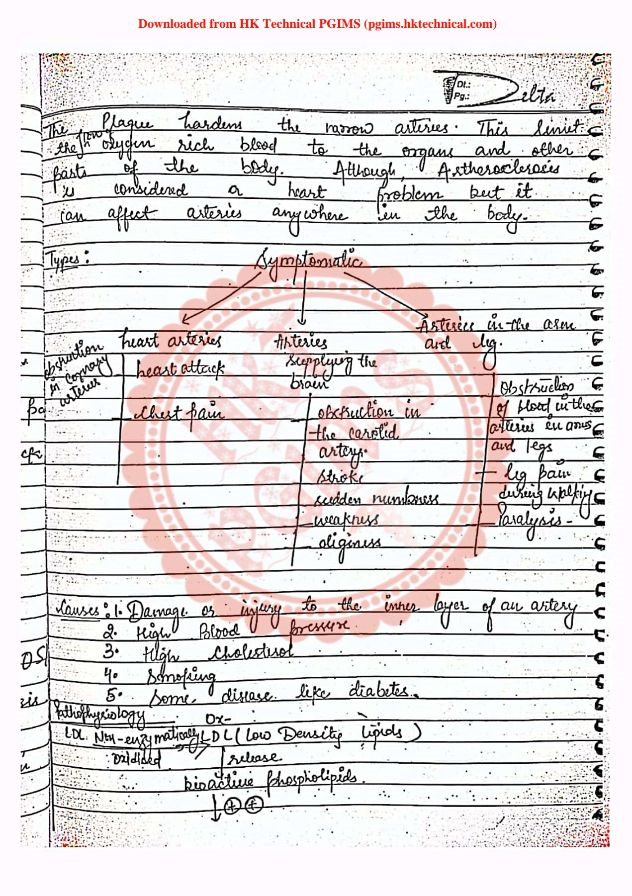 Downloaded from HK Technical PGIMS (pgims.hktechnical.com)
Dt.:
Pg.:
Delta
The Plaque hardens the narrow arteries. This limit
the flow oxygen rich blood to the organs and other
parts of the body. Although, Astherosclerosis
is considered a heart problem but it
can affect arteries anywhere in the body.
Types:
Symptomatic
heart arteries
Arteries supplying the brain
Arteries in the arm and leg.
obstruction in coronary arteries
heart attack
chest pain
obstruction in
the carotid
artery.
stroke
sudden numbness
weakness
diziness
Obstruction
of blood in the
arteries in arms
and legs
leg pain
during walking
Paralysis-
Causes: 1. Damage or injury to the inner layer of an artery
2. High Blood pressure
3. High cholesterol
4. Smoking
5. Some disease like diabetes.
Pathophysiology
Ox-
LDL Non-enzymatically LDL (Low Density lipids)
oxidised
release
bioactive phospholipids.
⊕ ⊕